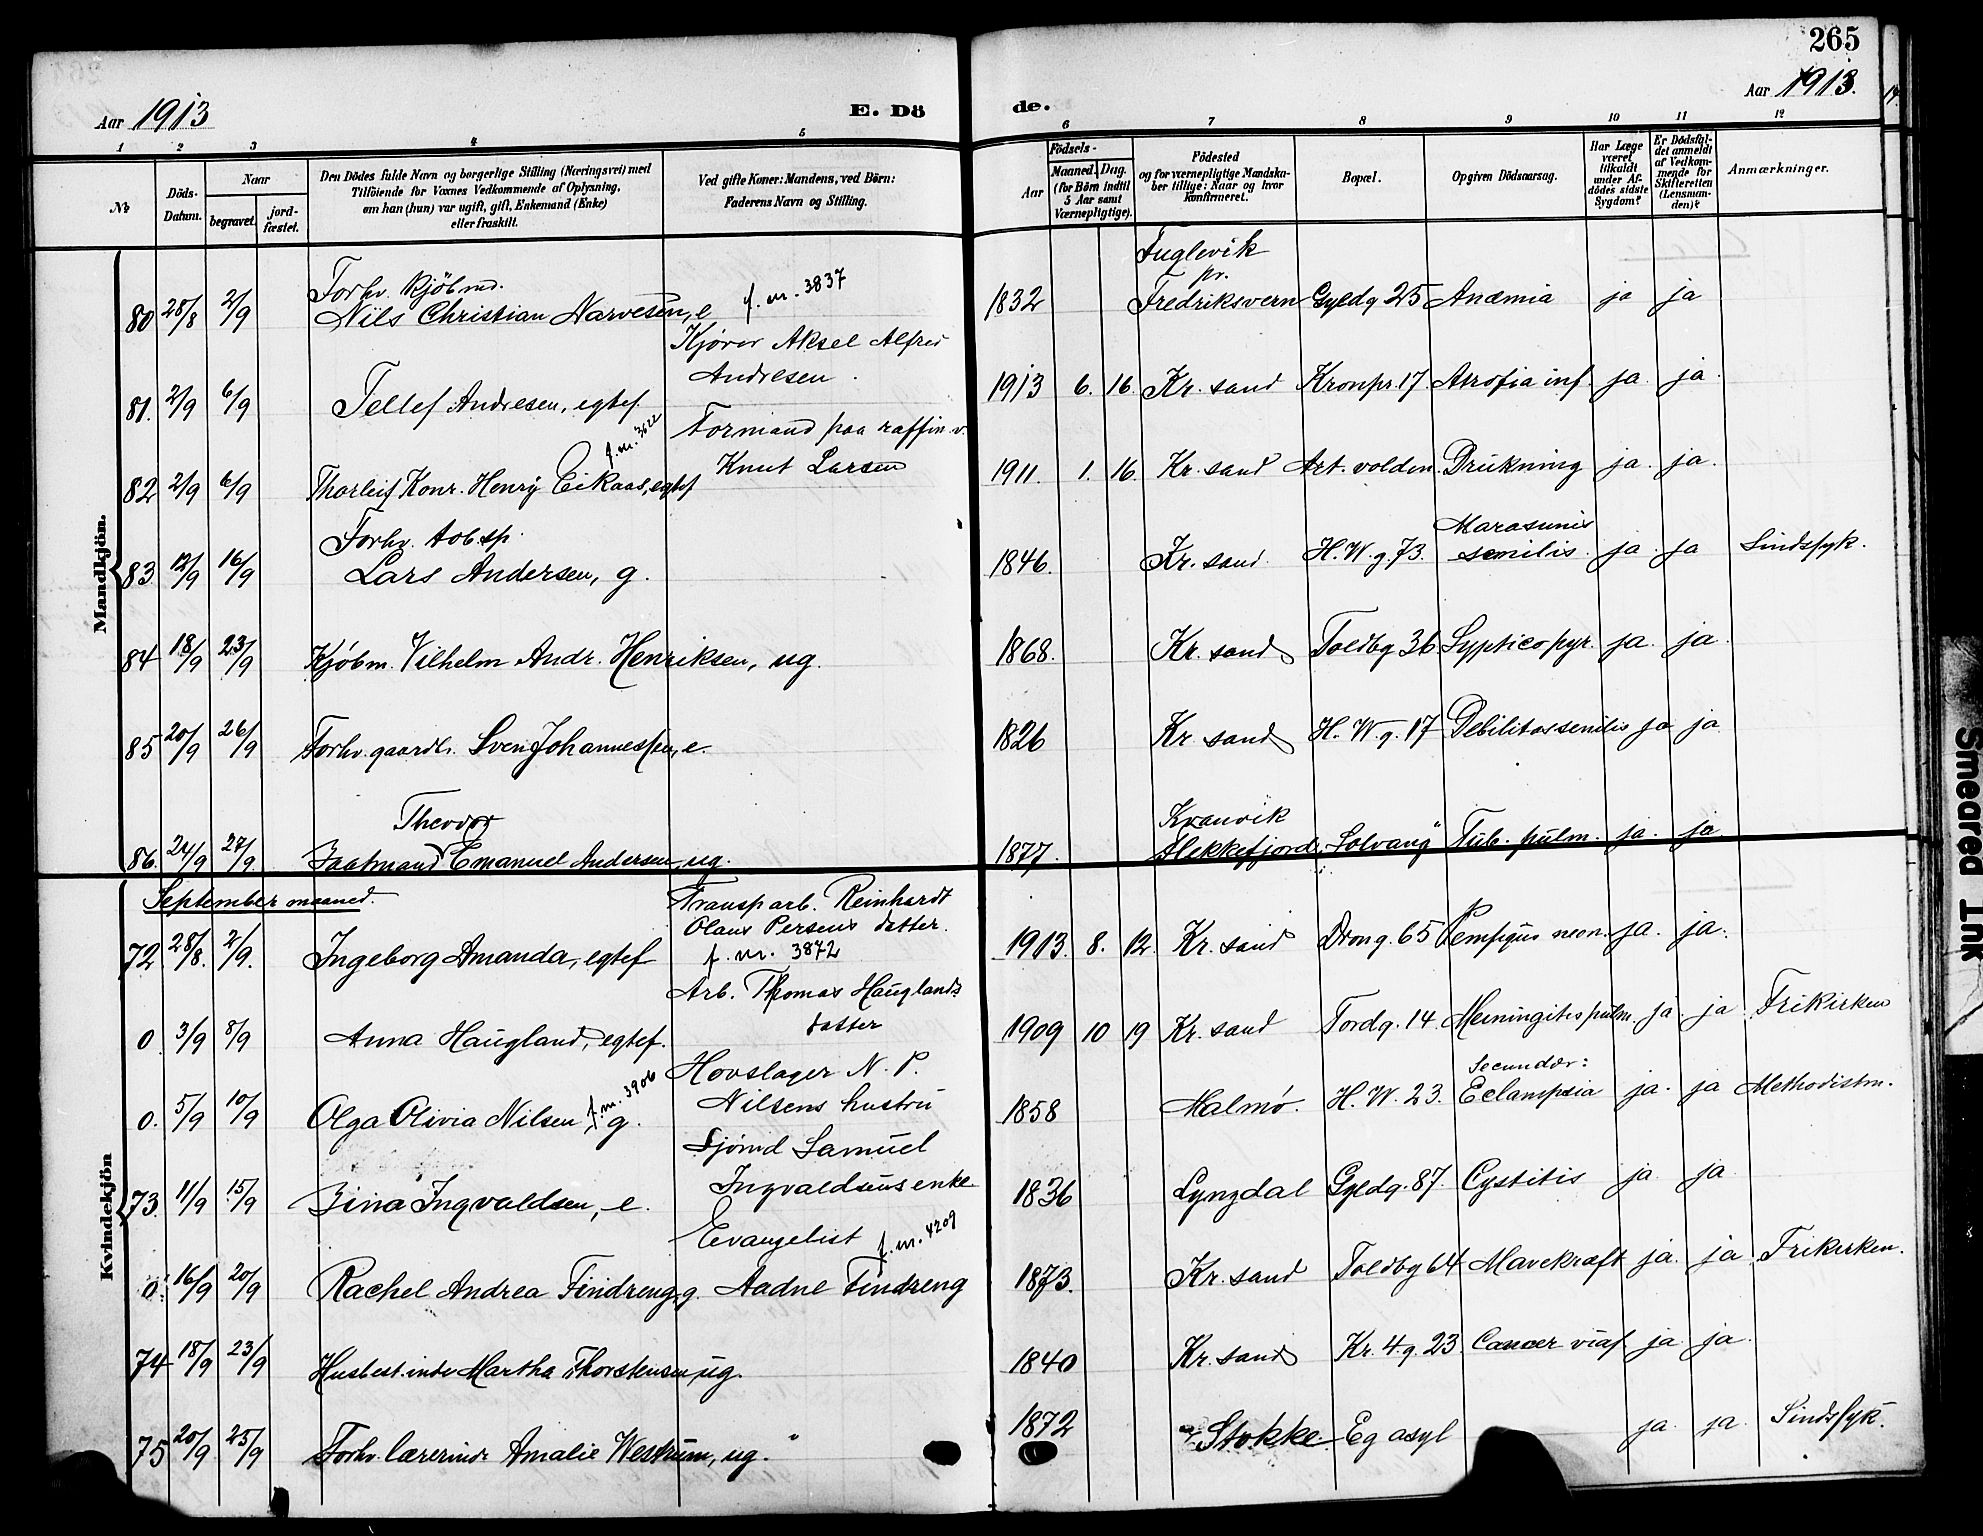 265
Aar 1913
E. Dö
de.
Aar 1913.
1 2 3 4 5 6 7 8 9 10 11 12
No
Döds-Datum.
Naar
begravet.
jord-fæstet.
Den Dödes fulde Navn og borgerlige Stilling (Næringsvei) med
Tilföiende for Voxnes Vedkommende af Oplysning,
om han (hun) var ugift, gift, Enkemand (Enke)
eller fraskilt.
Ved gifte Koner: Mandens, ved Börn:
Faderens Navn og Stilling.
Födsels-
Aar
Maaned. Dag.
(for Börn indtil
5 Aar samt
Værnepligtige).
Födested
og for værnepligtige Mandska-
ber tillige: Naar og hvor
konfirmeret.
Bopæl.
Opgiven Dödsaarsag.
Har Læge
været
tilkaldt
under Af-
dödes sidste
Sygdom?
Er Dödsfal-
det anmeldt
af Vedkom-
mende for
Skifteretten
(Lensman-
den)?
Anmærkninger.
Mandkjön.
Forhv. Kjöbmd. Fuglevik pr.
80 28/8 2/9 Nils Christian Narvesen, e f. m. 3837 1832 Fredriksvern Gyldg 25 Anæmia ja ja
Kjører Aksel Alfred
81. 2/9 6/9 Tellef Andresen, egtef. Andresen. 1913 6. 16. Kr. sand Kronpr. 17 Atrofia inf ja. ja.
f. m. 3622 Formand paa raffin. v.
82 2/9 6/9 Thorleif Konr. Henry Eikaas, egtef Knut Larsen 1911. 1. 16. Kr. sand Art. volden. Drukning ja. ja.
Forhv. tobsp. Marasmus
83. 12/9 16/9 Lars Andersen, g. 1846. Kr. sand. H. W. g 73. senilis. ja. ja Sindssyk.
84 18/9 23/9 Kjöbm. Vilhelm Andr. Henriksen, ug. 1868. Kr. sand Toldbg 36 ja. ja.
85 20/9 26/9 Forhv. gaardbr. Sven Johannessen, e. 1826 Kr. sand H. W. g. 17 Debilitas senilis ja ja.
Theodor
86. 24/9 27/9. Baatmand Emanuel Andersen, ug. 1877. Flekkefjord. "Solvang" Tub. pulm. ja. ja
Kvindekjön
September maaned. Transp arb. Reinhardt
Olaus Persens datter.
72. 28/8. 2/9. Ingeborg Amanda, egtef f. m. 3872 1913. 8. 12. Kr. sand Drong. 65 Pempigus neon. ja. ja.
Arb. Thomas Hauglands
datter
0. 3/9 8/9 Anna Haugland, egtef. 1909 10 19 Kr. sand Tordg. 14 Meningitis pulm. ja. ja Frikirken
Hovslager N. P. Secundær:
0. 5/9 10/9 Olga Olivia Nilsen, g. f. m. 3906 Nilsens hustru 1858 Malmø. H. W. 23. Eclampsia ja. ja Methodistm.
Sjömd Samuel
73. 11/9 15/9 Zina Ingvaldsen, e. Ingvaldsens enke 1836 Lyngdal Gyldg. 87. Cystitis ja. ja
Evangelist f. m. 4209
0. 16/9 20/9 Rachel Andrea Findreng, g. Aadne Findreng 1873. Kr. sand Toldbg 64 Mavekræft ja. ja Frikirken.
74 18/9 23/9 Husbest. inde Martha Thorstensen, ug. 1840 Kr. sand Kr. 4. g. 23. Cancer ja ja.
75 20/9 25/9 Forhv. lærerinde Amalie Westrum, ug. 1872 Stokke. Eg asyl ja. ja. Sindssyk.
Smeared Ink